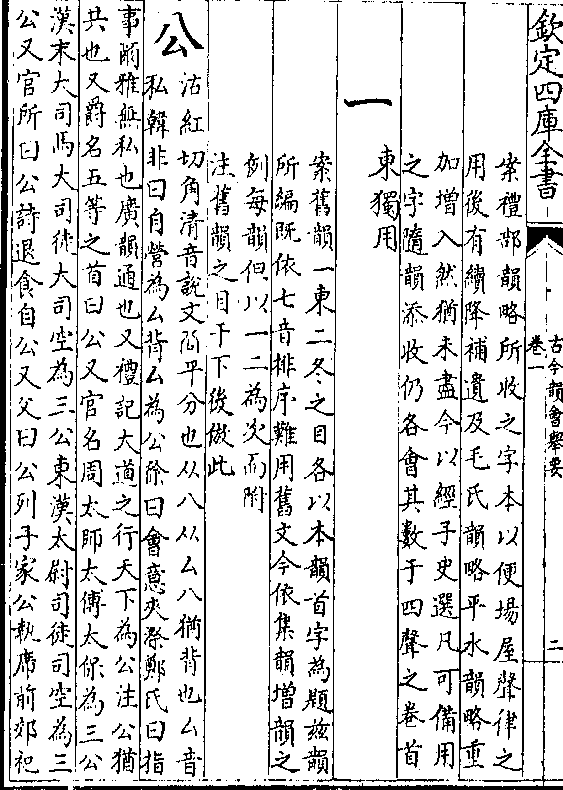 欽定四庫全書
古今韻會舉要
卷一
二
案禮部韻略所收之字本以便場屋聲律之
用後有續降補遺及毛氏韻略平水韻略重
加增入然猶未盡今以經子史選凡可備用
之字隨韻添收仍各會其數于四聲之卷首
東獨用
一
案舊韻一東二冬之目各以本韻首字為題兹韻
所編既依七音排序難用舊文今依集韻增韻之
例每韻但以一二為次而附
注舊韻之目于下後倣此
公
沽紅切角清音説文公平分也从八从厶八猶背也厶音
私韓非曰自營為厶背厶為公徐曰會意夾漈鄭氏曰指
事爾雅無私也廣韻通也又禮記大道之行天下為公注公猶
共也又爵名五等之首曰公又官名周太師太傅太保為三公
漢末大司馬大司徒大司空為三公東漢太尉司徒司空為三
公又官所曰公詩退食自公又父曰公列子家公執席前郊祀